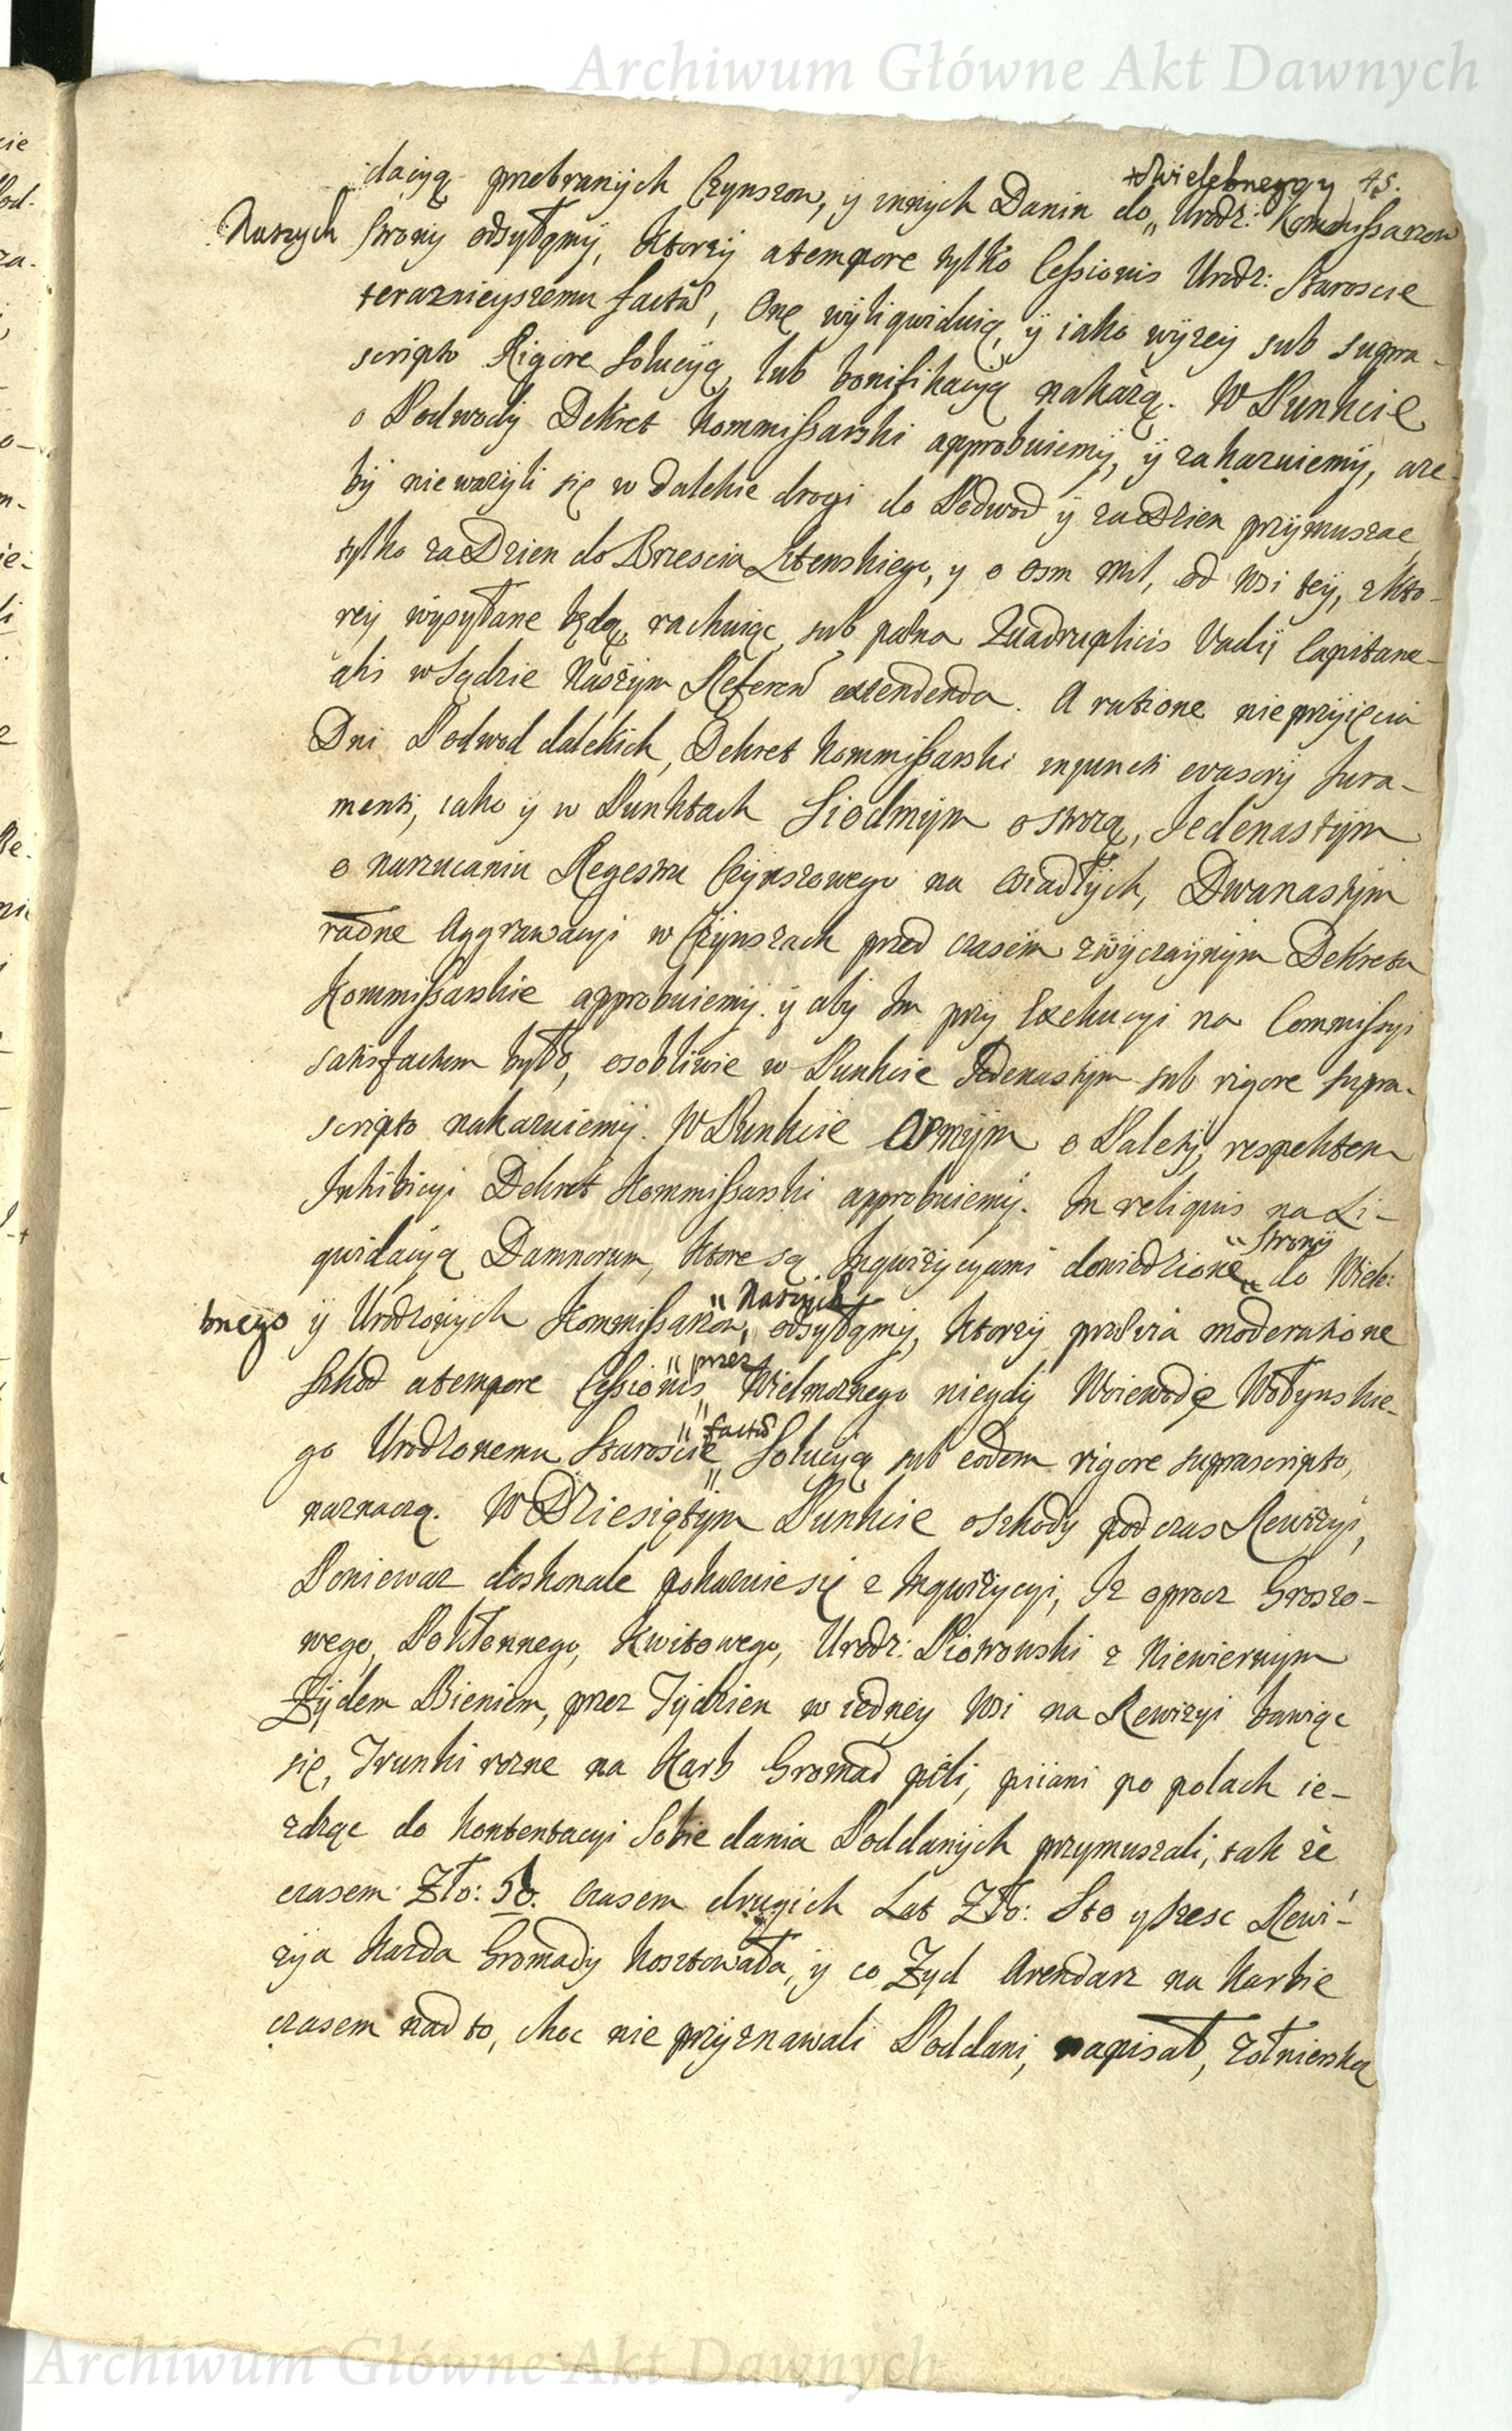 Archiwum Główne Akt Dawnych
Wielebnego y 45.
dacyą przebranych Czynszow, y innych Danin do Urodz: Kommissarzow
Naszych strony odsyłamy, ktorzy a tempore tylko Cessionis Urodz: Staroscie
teraznieyszemu factae, One wyliquiduią, y iako wyzey sub supra-
scripto Rigore Solucyą, lub bonifikacyą nakażą. W Punkcie
o Podwody Dekret Kommissarski approbuiemy, y zakazuiemy, aże-
by nie ważyli się w dalekie drogi do Podwod y za Dzien przymuszac
tylko za Dzien do Brzescia Litewskiego, y o osm Mil, od Wsi tey, z kto-
rey wysyłane będą, rachuiąc, sub paena Quadruplicis Vadij Capitane-
alis w Sądzie Naszym Referen extendenda. A ratione nieprzyięcia
Dni Podwod dalekich, Dekret Kommissarski inpuncti evasorij Jura-
menti, iako y w Punktach Siodmym o strożą, Jedenastym
o narzucaniu Regestru Czynszowego na osiadłych, Dwanastym
radne Aggrawacyi w Czynszach przed czasem zwyczaynym Dekreta
Kommissarskie approbuiemy. y aby Im przy Exekucyi na Commissyi
satisfactum było, osobliwie w Punkcie Jedenastym sub rigore supra-
scripto nakazuiemy. W Punkcie Osmym o Palety, respektem
Inhibicyi Dekret Kommissarski approbuiemy. In reliquis na Li-
strony
qwidacyą Damnorum, ktore są Inqwizycyami dowiedzione do Wiele-
Naszych
bnego y Urodzonych Kommissarzow, odsyłamy, ktorzy praevia moderatione
przez
Szkod a tempore Cessionis Wielmoznego niegdy Woiewodę Wołynskie-
factae
go Urodzonemu Staroscie Solucyą sub eodem rigore suprascripto,
naznaczą. W Dziesiątym Punkcie o szkody podczas Rewizyi,
Poniewaz doskonale pokazuie się z Inqwizycyi, Iz oprocz Groszo-
wego, Pokłonnego, Kwitowego, Urodz: Piotrowski z Niewiernym
Żydem Bieniem, przez Tydzien w iedney Wsi na Rewizyi bawiąc
się, Trunki rozne na Karb Gromad pili, piiani po polach ie-
zdząc do kontentacyi Sobie dania Poddanych przymuszali, tak że
czasem Zło: 50. czasem drugich Lat Zło: Sto y szesc Rewi-
zyia Kazda Gromady kosztowała, y co Żyd Arendarz na Karbie
czasem nad to, choc nie przyznawali Poddani, napisał, żołnierską
Archiwum Główne Akt Dawnych